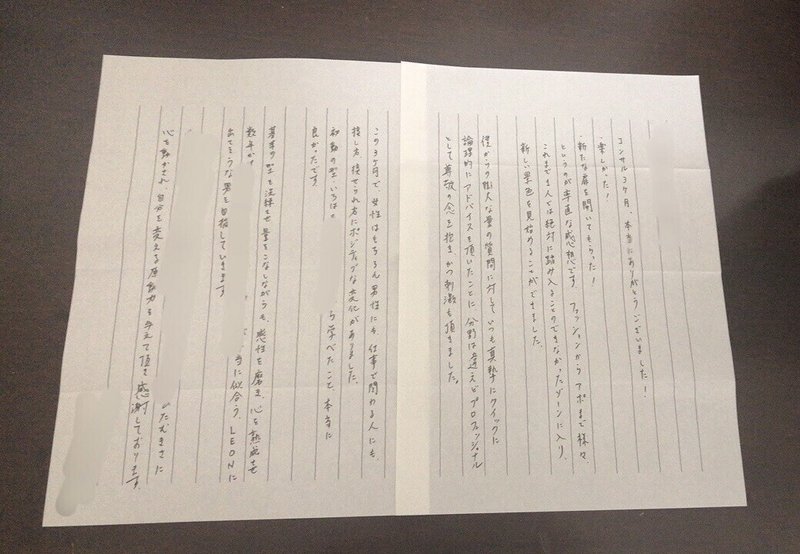 コンサル3ヶ月、本当にありがとうございました!
・楽しかった!
・新たな扉を開いてもらった!
というのが率直な感想です。ファッションからアポまで様々、
これまで1人では絶対に踏み入ることのできなかったゾーンに入り、
新しい景色を見始めることができました。
僕からの膨大な量の質問に対していつも真摯にクイックに
論理的にアドバイスを頂いたことに、分野は違えどプロフェッショナル
として尊敬の念を抱き、かつ刺激も頂きました。
この3ヶ月で、女性はもちろん男性にも、仕事で関わる人にも、
接し方、接せられ方にポジティブな変化がありました。
初動の型、いろはを
ら学べたこと、本当に
良かったです。
基本の型を洗練させ、量をこなしながらも、感性を磨き、心を熟成させ
数年かけ
に似合う、LEONに
出てそうな男を目指していきます。
ひたむきさに
心を動かされ、自分を変える原動力を与えて頂き感謝しております。